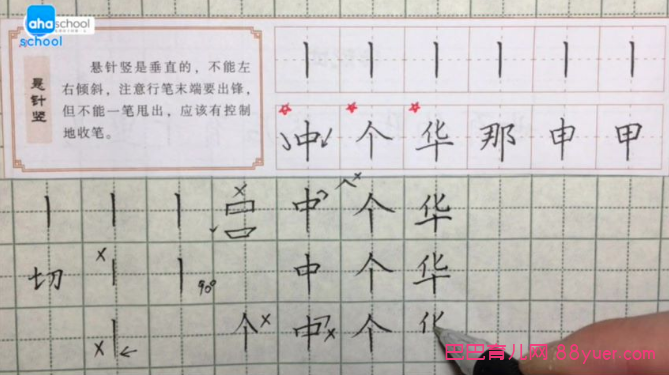 ahaschool
school
悬针竖
悬针竖是垂直的，不能左
右倾斜，注意行笔末端要出锋，
但不能一笔甩出，应该有控制
地收笔。
中 个 华 那 申 甲
中 个 华
切 90° 中 个 华
个 中 个
巴巴育儿网:88yuer.com